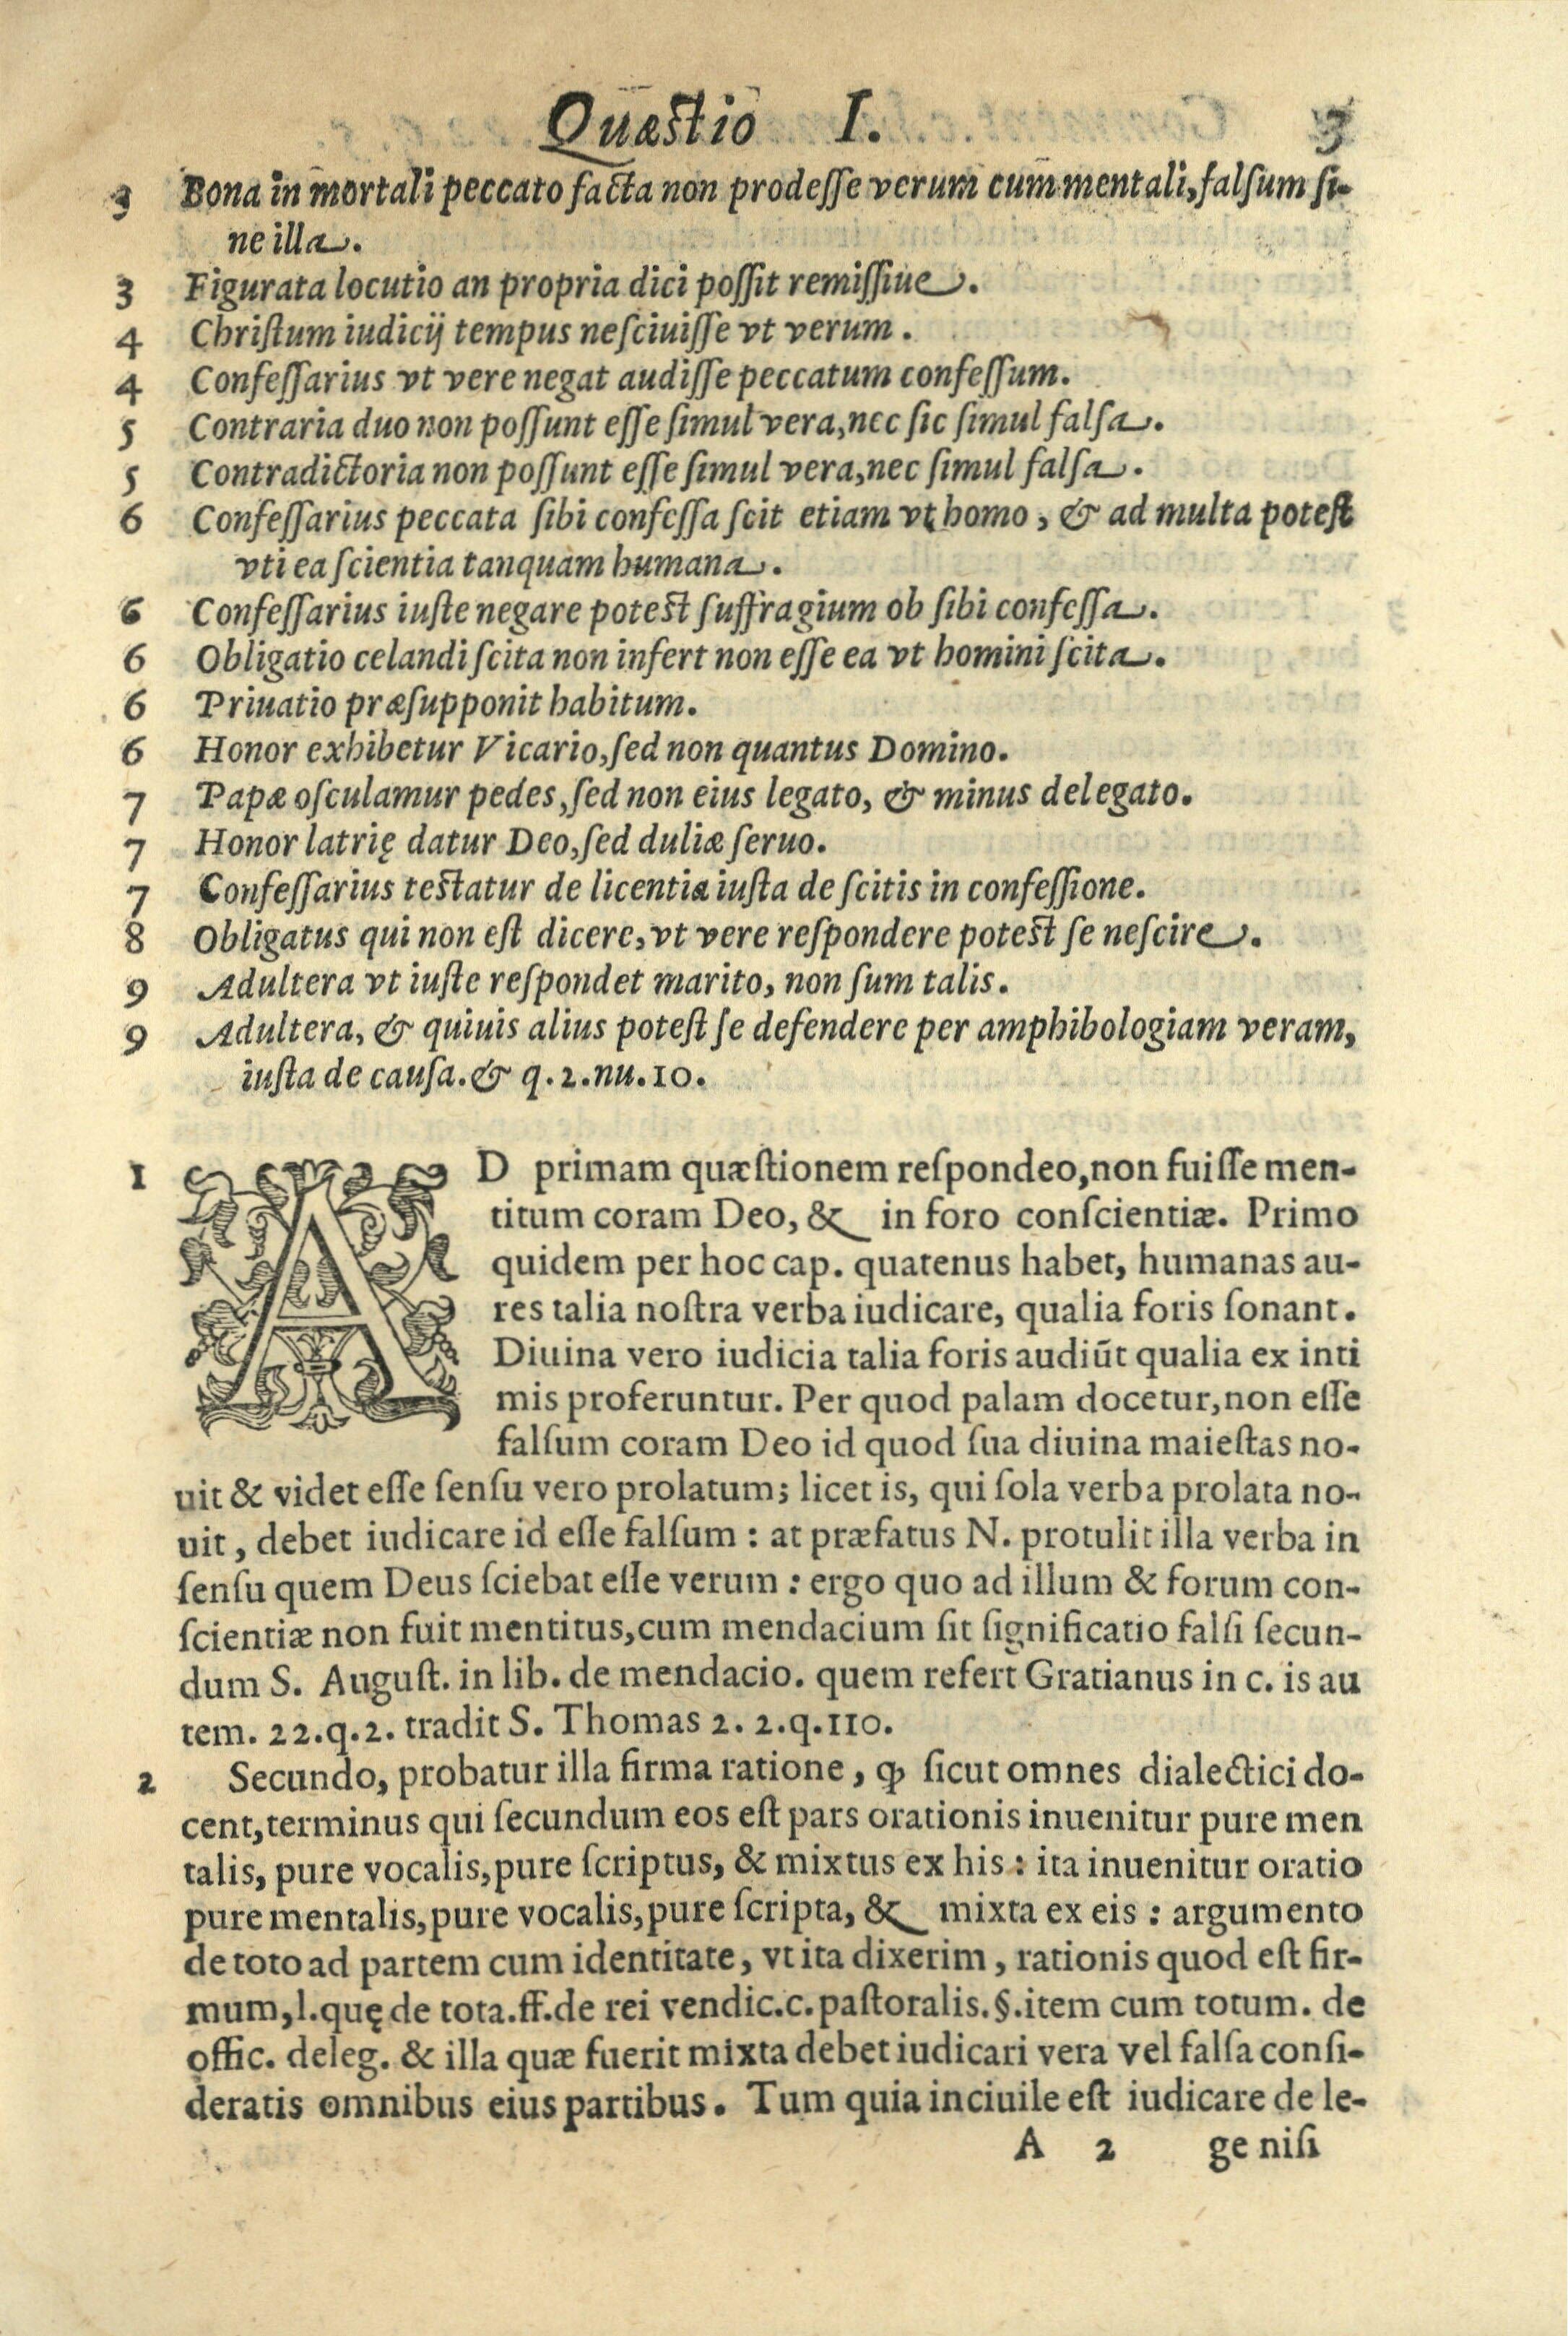 Quæstio I. 3
3 Bona in mortali peccato facta non prodesse verum cum mentali, falsum si-
ne illa.
3 Figurata locutio an propria dici possit remissiue.
4 Christum iudicij tempus nesciuisse vt verum.
4 Confessarius vt vere negat audisse peccatum confessum.
5 Contraria duo non possunt esse simul vera, nec sic simul falsa.
5 Contradictoria non possunt esse simul vera, nec simul falsa.
6 Confessarius peccata sibi confessa scit etiam vt homo, & ad multa potest
vti ea scientia tanquam humana.
6 Confessarius iuste negare potest suffragium ob sibi confessa.
6 Obligatio celandi scita non infert non esse ea vt homini scita.
6 Priuatio præsupponit habitum.
6 Honor exhibetur Vicario, sed non quantus Domino.
7 Papæ osculamur pedes, sed non eius legato, & minus delegato.
7 Honor latrię datur Deo, sed duliæ seruo.
7 Confessarius testatur de licentia iusta de scitis in confessione.
8 Obligatus qui non est dicere, vt vere respondere potest se nescire.
9 Adultera vt iuste respondet marito, non sum talis.
9 Adultera, & quiuis alius potest se defendere per amphibologiam veram,
iusta de causa. & q. 2. nu. 10.
1 AD primam quæstionem respondeo, non fuisse men-
titum coram Deo, & in foro conscientiæ. Primo
quidem per hoc cap. quatenus habet, humanas au-
res talia nostra verba iudicare, qualia foris sonant.
Diuina vero iudicia talia foris audiūt qualia ex inti
mis proferuntur. Per quod palam docetur, non esse
falsum coram Deo id quod sua diuina maiestas no-
uit & videt esse sensu vero prolatum; licet is, qui sola verba prolata no-
uit, debet iudicare id esse falsum : at præfatus N. protulit illa verba in
sensu quem Deus sciebat esse verum : ergo quo ad illum & forum con-
scientiæ non fuit mentitus, cum mendacium sit significatio falsi secun-
dum S. August. in lib. de mendacio. quem refert Gratianus in c. is au
tem. 22. q. 2. tradit S. Thomas 2. 2. q. 110.
2 Secundo, probatur illa firma ratione, ꝙ sicut omnes dialectici do-
cent, terminus qui secundum eos est pars orationis inuenitur pure men
talis, pure vocalis, pure scriptus, & mixtus ex his : ita inuenitur oratio
pure mentalis, pure vocalis, pure scripta, & mixta ex eis : argumento
de toto ad partem cum identitate, vt ita dixerim, rationis quod est fir-
mum, l. quę de tota. ff. de rei vendic. c. pastoralis. §. item cum totum. de
offic. deleg. & illa quæ fuerit mixta debet iudicari vera vel falsa consi-
deratis omnibus eius partibus. Tum quia inciuile est iudicare de le-
A 2 ge nisi